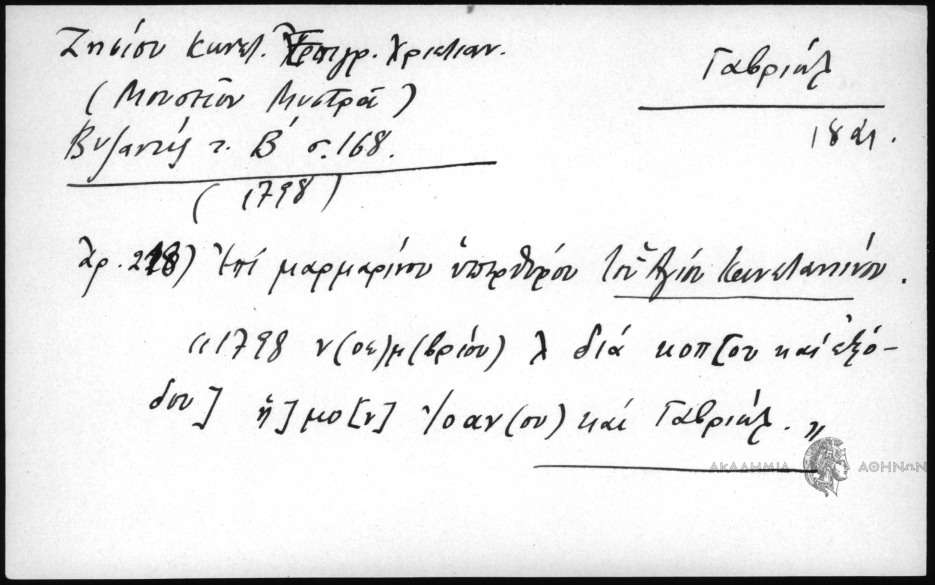 Ζησίου Κωνστ. Ἐπιγρ. Χριστιαν.
(Μουσεῖον Μυστρᾶ)
Βυζαντίς τ. Β΄ σ. 168.
(1798)
Γαβριήλ
18 αι.
Ἀρ. 218) Ἐπί μαρμαρίνου ὑπερθύρου τοῦ Ἁγίου Κωνσταντίνου.
"1798 ν(οε)μ(βρίου) λ διά κοπ[ου καί ἐξό-
δου] ἡ]μο[ν] Ἰοαν(ου) καί Γαβριήλ."
ΑΚΑΔΗΜΙΑ ΑΘΗΝΩΝ